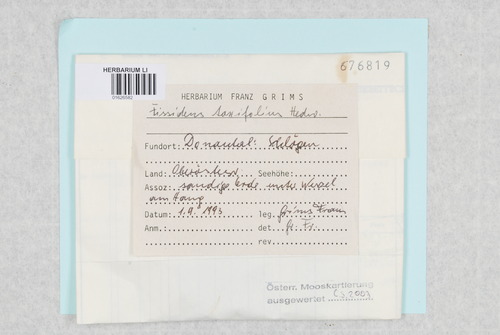 676819
HERBARIUM LI
HERBARIUM FRANZ GRIMS
Fissidens taxifolius Hedw.
Fundort: Donautal: Schlögen
Land: Oberösterr. Seehöhe:
Assoz: sandige Erde unter Wiesel
am Hang
Datum: 1.9.1993 leg. Grims Franz
Anm. det Gr. Fr.
rev.
Österr. Mooskartierung
ausgewertet